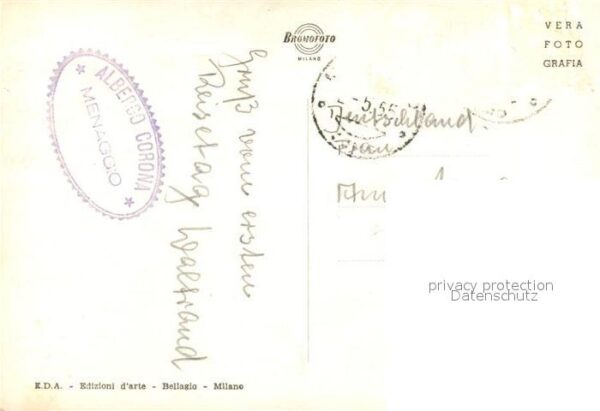 BROMOFOTO
MILANO
VERA
FOTO
GRAFIA
ALBERGO CORONA
MENAGGIO
Gruß vom ersten
Reisetag Waltraud
5.55
Deutschland
Frau
privacy protection
Datenschutz
E.D.A. - Edizioni d'arte - Bellagio - Milano